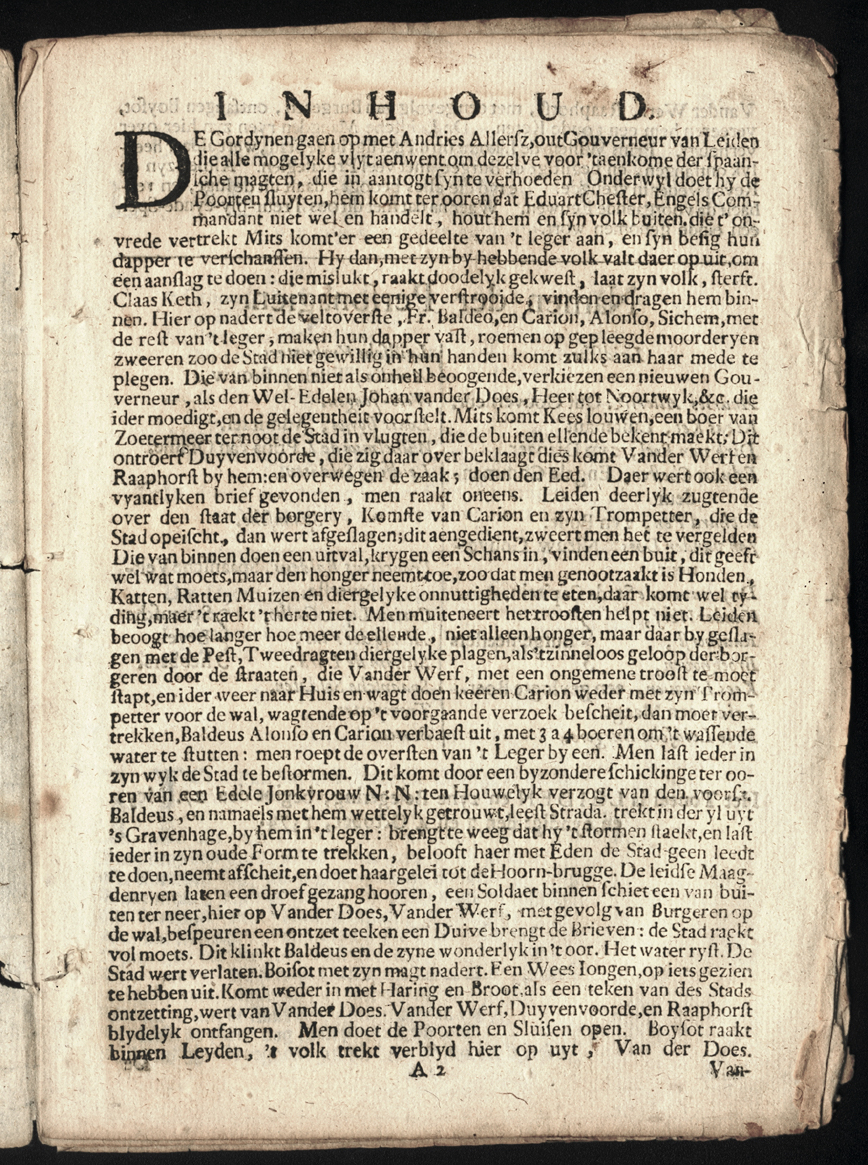 INHOUD.
DE Gordynen gaen op met Andries Allersz, out Gouverneur van Leiden
die alle mogelyke vlyt aenwent om dezelve voor 't aenkome der spaan-
sche magten, die in aantogt syn te verhoeden Onderwyl doet hy de
Poorten sluyten, hem komt ter ooren dat Eduart Chester, Engels Com-
mandant niet wel en handelt, hout hem en syn volk buiten, die t' on-
vrede vertrekt Mits komt'er een gedeelte van 't leger aan, en syn besig hun
dapper te verschanssen. Hy dan, met zyn by hebbende volk valt daer op uit, om
een aanslag te doen: die mislukt, raakt doodelyk gekwest, laat zyn volk, sterft.
Claas Keth, zyn Luitenant met eenige verstrooide, vinden en dragen hem bin-
nen. Hier op nadert de veltoverste, Fr. Baldeo, en Carion, Alonso, Sichem, met
de rest van 't leger; maken hun dapper vast, roemen op gepleegde moorderyen
zweeren zoo de Stad niet gewillig in hun handen komt zulks aan haar mede te
plegen. Die van binnen niet als onheil beoogende, verkiezen een nieuwen Gou-
verneur, als den Wel-Edelen Johan vander Does, Heer tot Noortwyk, &c. die
ider moedigt, en de gelegentheit voorstelt. Mits komt Kees louwen, een boer van
Zoetermeer ter noot de Stad in vlugten, die de buiten ellende bekent maekt; Dit
ontroerf Duyvenvoorde, die zig daar over beklaagt dies komt Vander Werf en
Raaphorst by hem: en overwegen de zaak; doen den Eed. Daer wert ook een
vyantlyken brief gevonden, men raakt oneens. Leiden deerlyk zugtende
over den staat der borgery, Komste van Carion en zyn Trompetter, die de
Stad opeischt, dan wert afgeslagen; dit aengedient, zweert men het te vergelden
Die van binnen doen een uitval, krygen een Schans in, vinden een buit, dit geeft
wel wat moets, maar den honger neemt toe, zoo dat men genootzaakt is Honden,
Katten, Ratten Muizen en diergelyke onnuttigheden te eten, daar komt wel ty-
ding, maer 't raekt 't herte niet. Men muiteneert het troosten helpt niet. Leiden
beoogt hoe langer hoe meer de ellende, niet alleen honger, maar daar by gesla-
gen met de Pest, Tweedragten diergelyke plagen, als 't zinneloos geloop der bor-
geren door de straaten, die Vander Werf, met een ongemene troost te moet
stapt, en ider weer naar Huis en wagt doen keeren Carion weder met zyn Trom-
petter voor de wal, wagtende op 't voorgaande verzoek bescheit, dan moet ver-
trekken, Baldeus Alonso en Carion verbaest uit, met 3 a 4 boeren om 't wassende
water te stutten: men roept de oversten van 't Leger by een. Men last ieder in
zyn wyk de Stad te bestormen. Dit komt door een byzondere schickinge ter oo-
ren van een Edele Jonkvrouw N: N: ten Houwelyk verzogt van den voorsz.
Baldeus, en namaels met hem wettelyk getrouwt, leest Strada. trekt in der yl uyt
's Gravenhage, by hem in 't leger: brengt te weeg dat hy 't stormen staekt, en last
ieder in zyn oude Form te trekken, belooft haer met Eden de Stad geen leedt
te doen, neemt afscheit, en doet haar gelei tot de Hoorn-brugge. De leidse Maag-
denryen laten een droef gezang hooren, een Soldaet binnen schiet een van bui-
ten ter neer, hier op Vander Does, Vander Werf, met gevolg van Burgeren op
de wal, bespeuren een ontzet teeken een Duive brengt de Brieven: de Stad raekt
vol moets. Dit klinkt Baldeus en de zyne wonderlyk in 't oor. Het water ryst. De
Stad wert verlaten. Boisot met zyn magt nadert. Een Wees Iongen, op iets gezien
te hebben uit. Komt weder in met Haring en Broot. als een teken van des Stads
ontzetting, wert van Vander Does. Vander Werf, Duyvenvoorde, en Raaphorst
blydelyk ontfangen. Men doet de Poorten en Sluisen open. Boysot raakt
binnen Leyden, 't volk trekt verblyd hier op uyt, Van der Does.
A 2 Van-